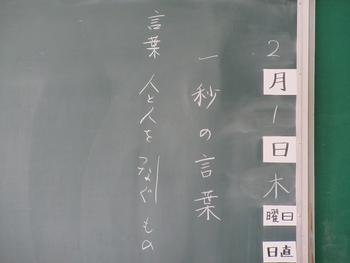 2月1日木曜日
日直
一秒の言葉
言葉 人と人を つなぐ もの